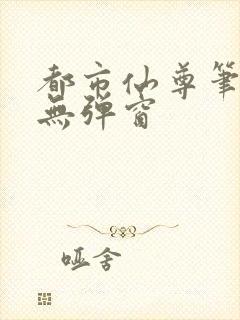 都市仙尊筆
無彈窗
哑舍